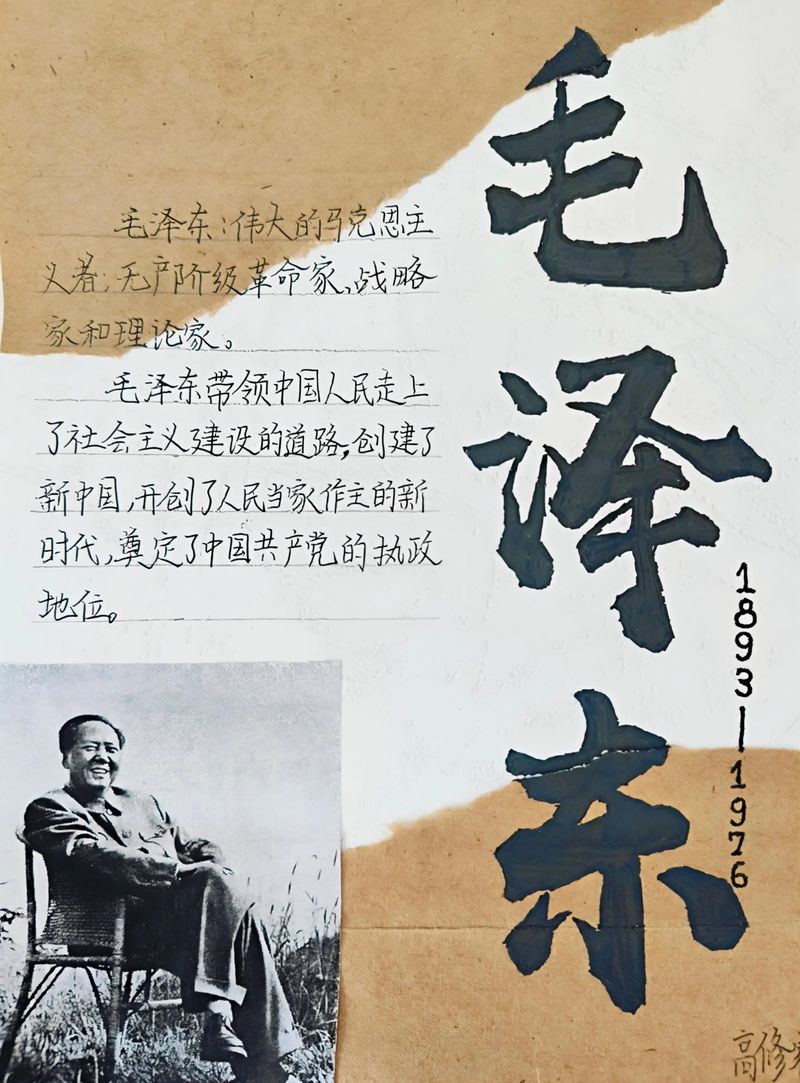 毛泽东
1893—1976
毛泽东:伟大的马克思主
义者;无产阶级革命家、战略
家和理论家。
毛泽东带领中国人民走上
了社会主义建设的道路,创建了
新中国,开创了人民当家作主的新
时代,奠定了中国共产党的执政
地位。
高修